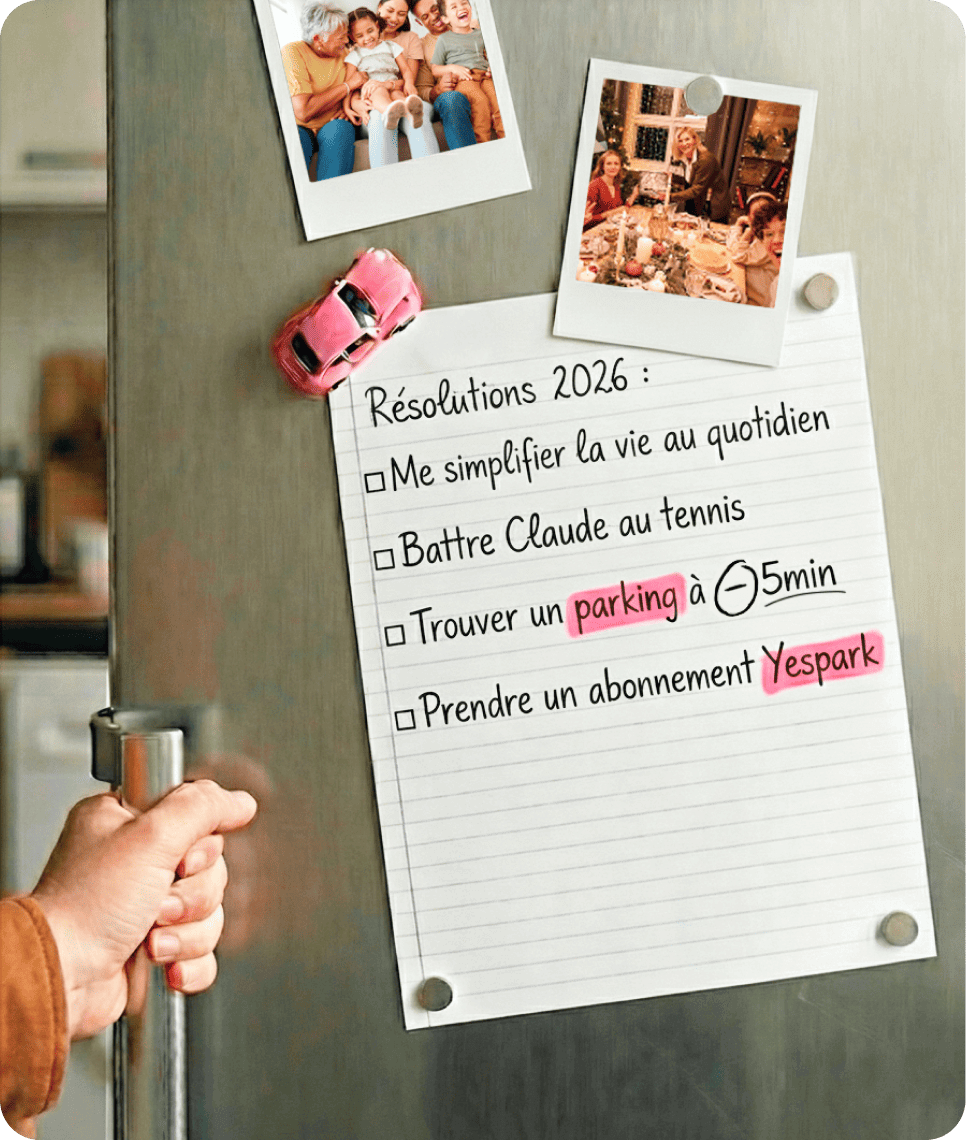 Résolutions 2026 :
Me simplifier la vie au quotidien
Battre Claude au tennis
Trouver un parking à -5min
Prendre un abonnement Yespark